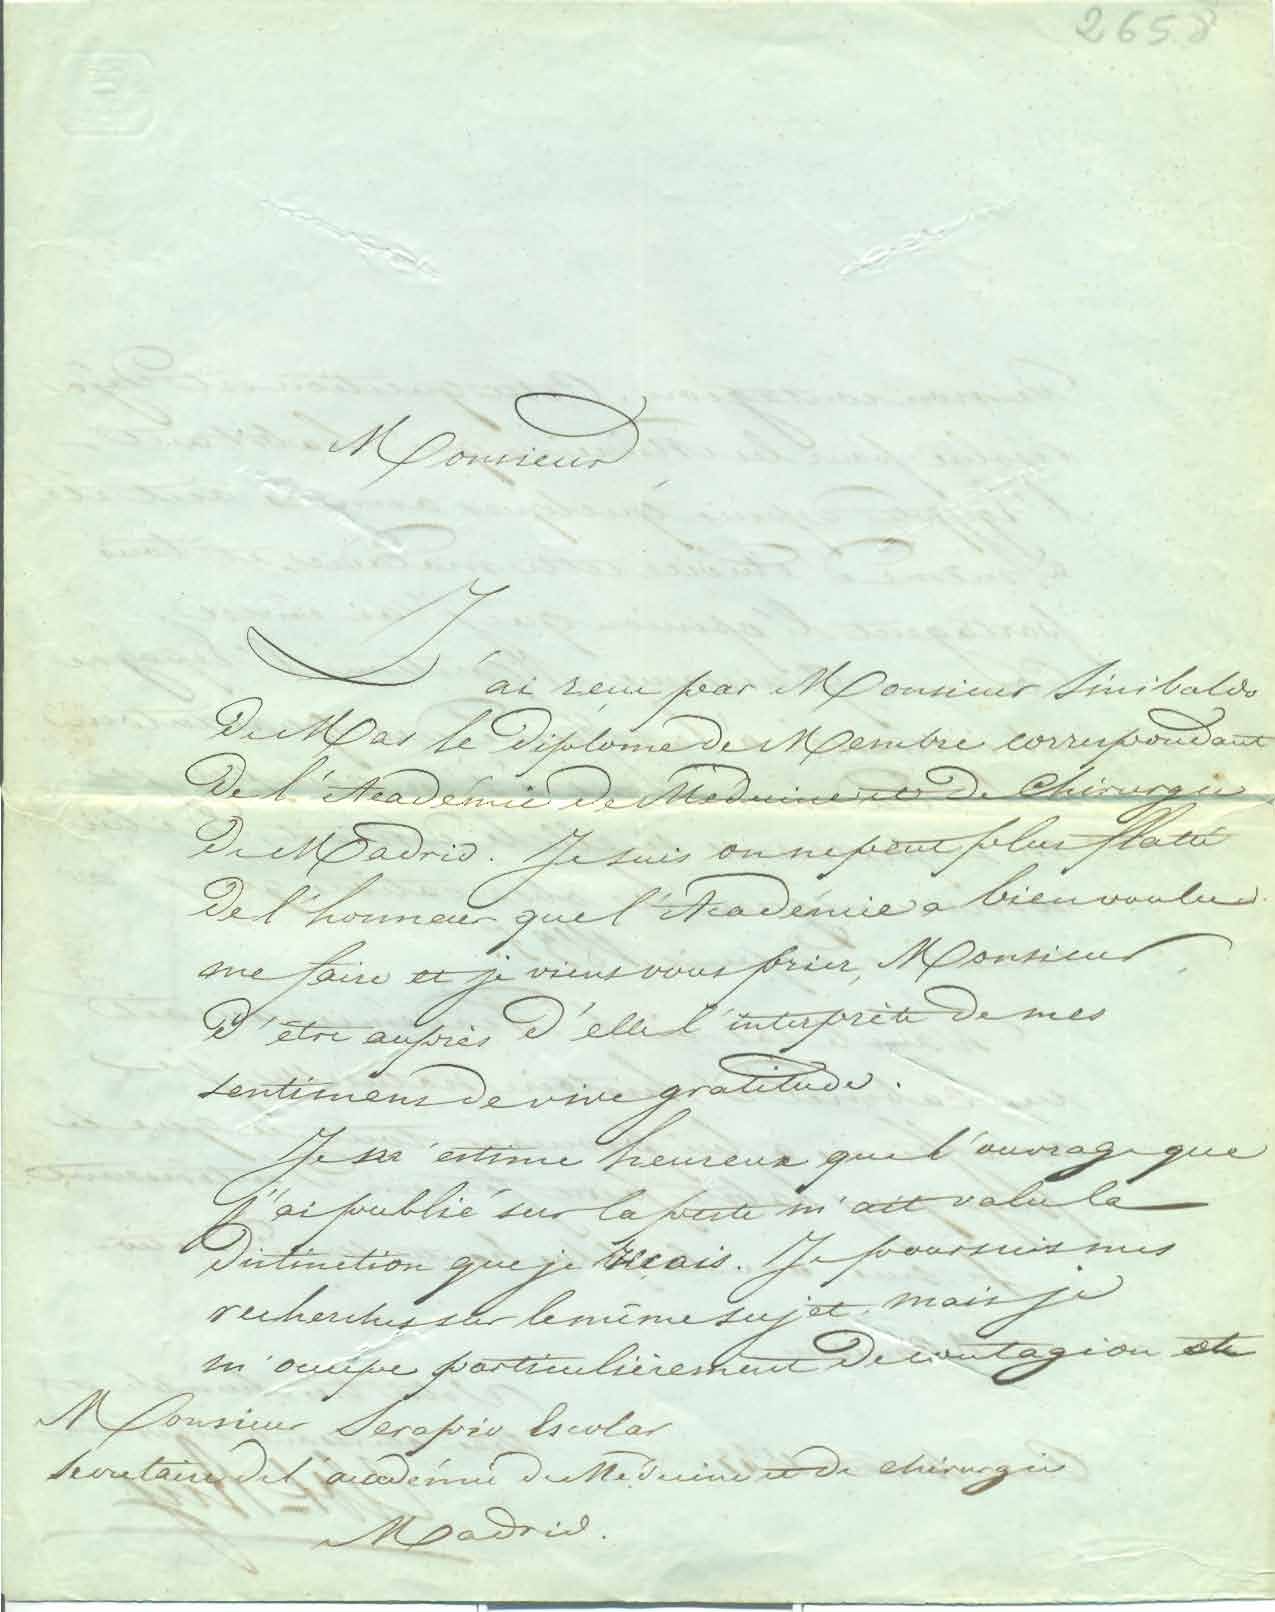 2658
Monsieur,
J'ai reçu par Monsieur Sinibaldo
De Mas le Diplôme de Membre correspondant
De l'Académie de Médecine et de Chirurgie
De Madrid. Je suis on ne peut plus flatté
De l'honneur que l'Académie a bien voulu
me faire et je viens vous prier, Monsieur,
D'être auprès D'elle l'interprète de mes
sentimens de vive gratitude.
Je m'estime heureux que l'ouvrage que
j'ai publié sur la peste m'ait valu la
distinction que je reçois. Je poursuis mes
recherches sur le même sujet. mais je
m'occupe particulièrement De contagion et
Monsieur Serapio Escolar
Secretaire de l'académie de Médecine et de chirurgie
Madrid.